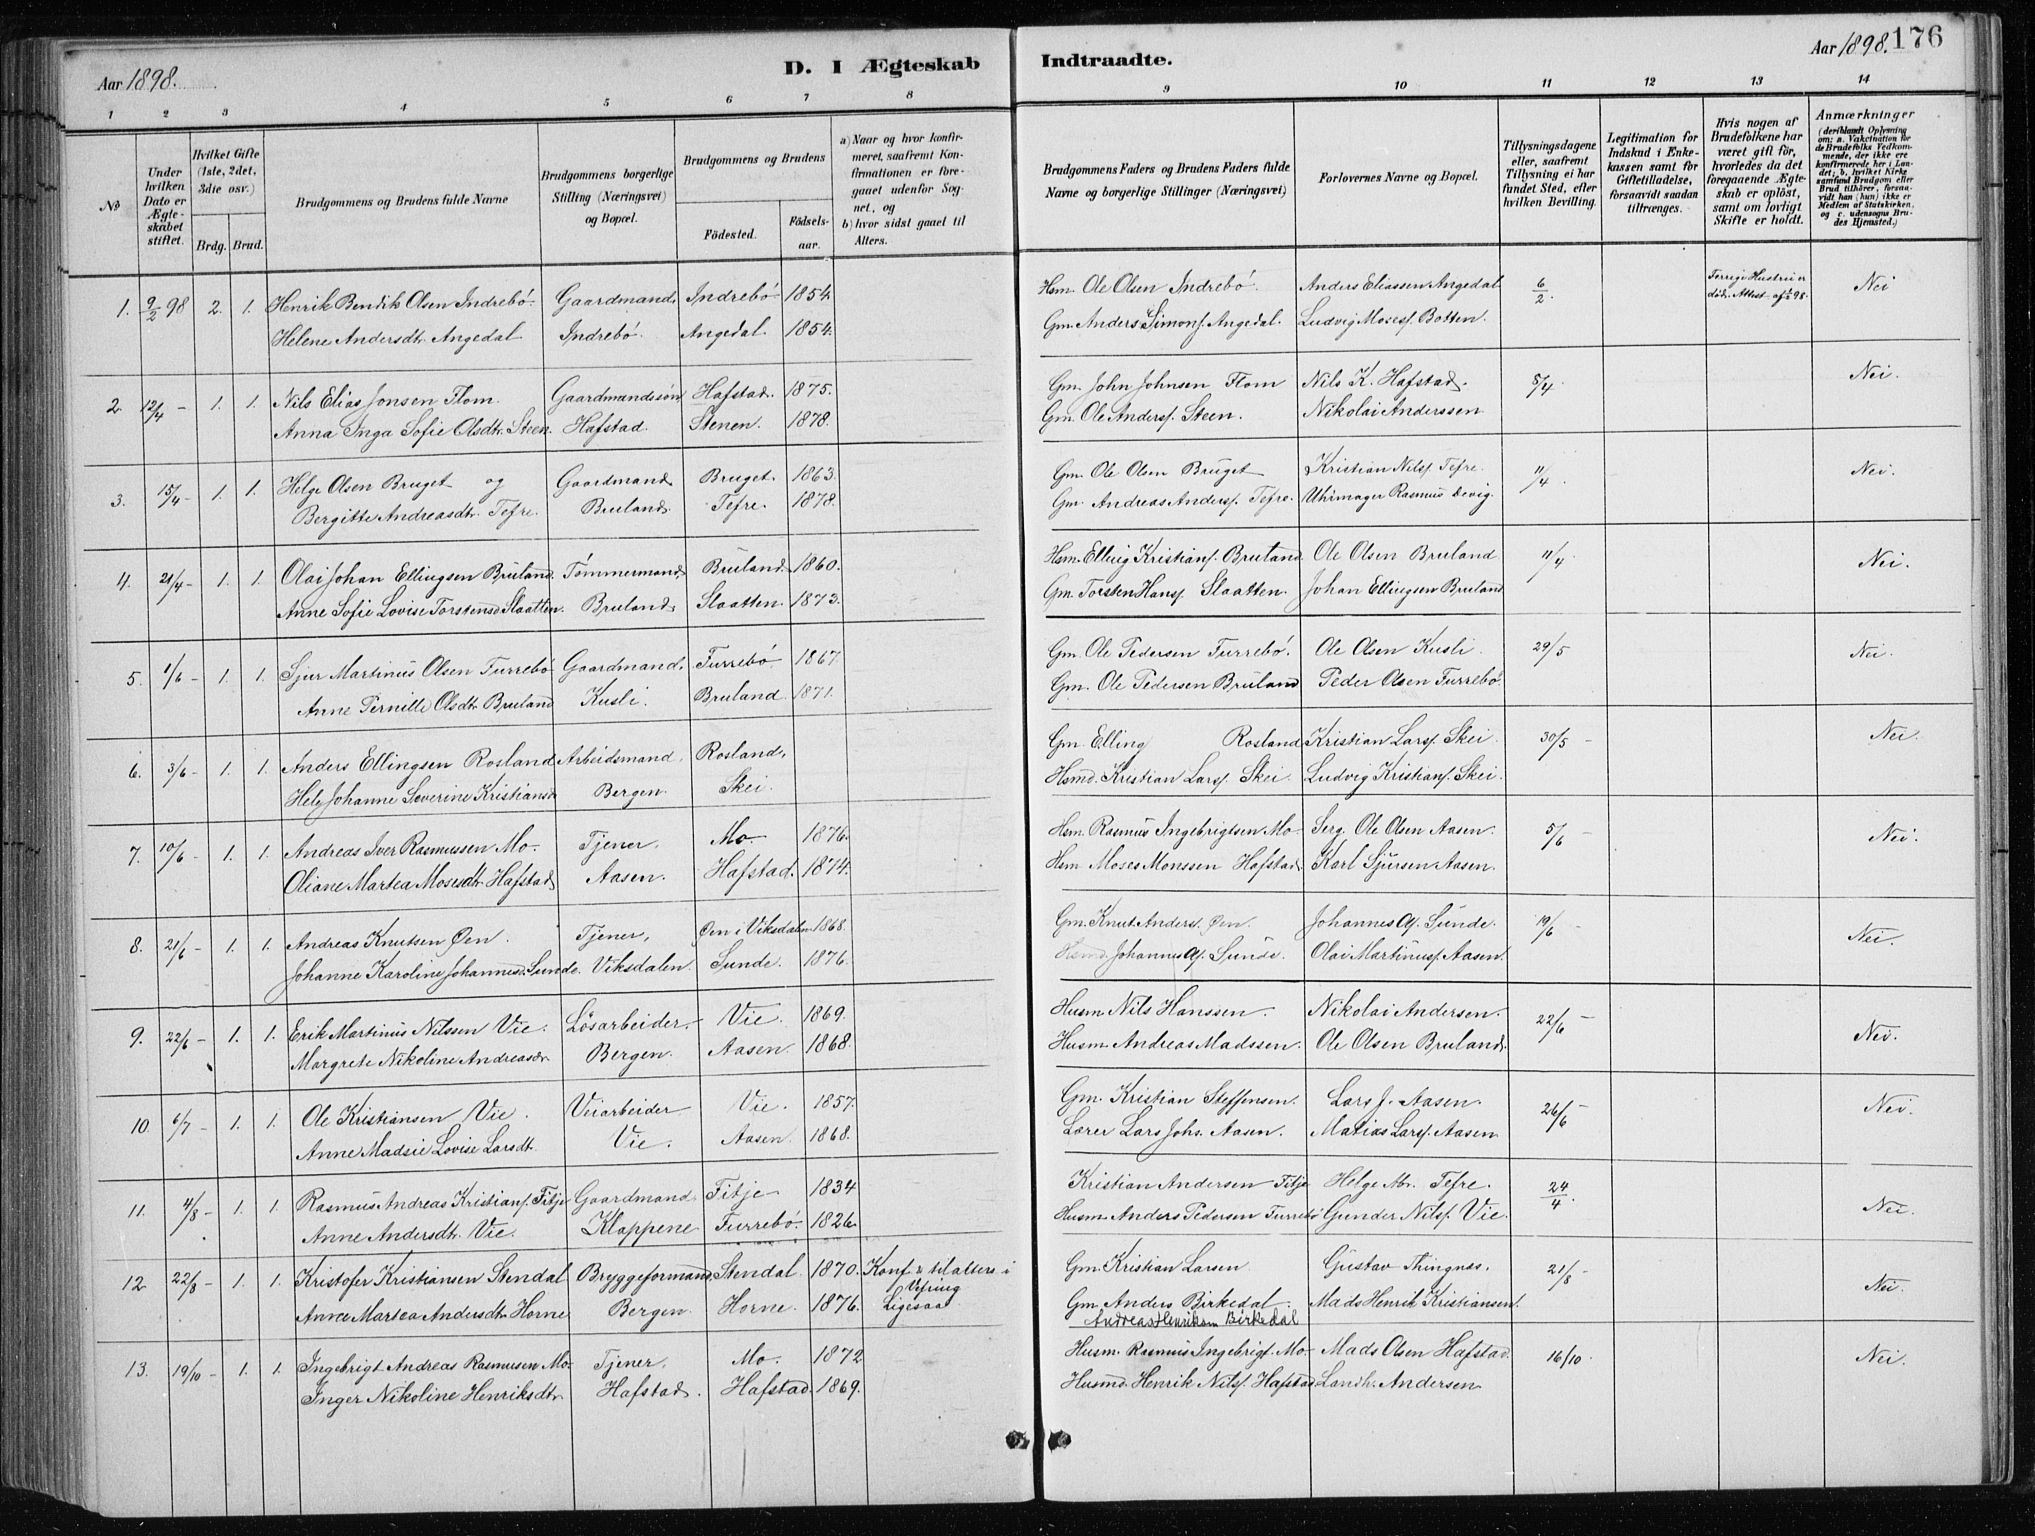 Aar 1898.
D. I Ægteskab
Indtraadte.
Aar 1898. 176
1 2 3 4 5 6 7 8 9 10 11 12 13 14
No
Under hvilken Dato er Ægteskabet stiftet.
Hvilket Gifte (1ste, 2det, 3die osv.)
Brdg. Brud.
Brudgommens og Brudens fulde Navne
Brudgommens borgerlige Stilling (Næringsvei) og Bopæl.
Brudgommens og Brudens
Födested.
Födsels-aar.
a) Naar og hvor konfirmeret, saafremt Konfirmationen er foregaaet udenfor Sognet, og
b) hvor sidst gaaet til Alters.
Brudgommens Faders og Brudens Faders fulde Navne og borgerlige Stillinger (Næringsvei)
Forlovernes Navne og Bopæl.
Tillysningsdagene eller, saafremt Tillysning ei har fundet Sted, efter hvilken Bevilling.
Legitimation for Indskud i Enkekassen samt for Giftetilladelse, forsaavidt saadan tiltrænges.
Hvis nogen af Brudefolkene har været gift för, hvorledes da det foregaaende Ægteskab er oplöst, samt om lovligt Skifte er holdt.
Anmærkninger
(deriblandt Oplysning om: a. Vakcination for de Brudefolks Vedkommende, der ikke ere konfirmerede her i Landet; b. hvilket Kirkesamfund Brudgom eller Brud tilhörer, forsaavidt han (hun) ikke er Medlem af Statskirken, og c. udensogns Brudes Hjemsted.)
1. 9/2 98 2. 1. Henrik Bendik Olsen Indrebö. Gaardmand. Indrebö 1854. Hsm. Ole Olsen Indrebö. Anders Eliassen Angedal 6/2. Forrige Hustru er Nei
Helene Andersdtr. Angedal Indrebö. Angedal. 1854. Gm. Anders Simons. Angedal. Ludvig Moses. Botten. död. Attest
2. 12/4 - 1. 1. Nils Elias Jonsen Flom. Gaardmandssön Hafstad. 1875. Gm. John Johnsen Flom Nils K. Hafstad. 8/4 Nei.
Anna Inga Sofie Olsdtr. Steen. Hafstad. Stenen. 1878. Gm. Ole Anders. Steen. Nikolai Anderssen
3. 15/4 - 1. 1. Helge Olsen Bruget og Gaardmand Bruget. 1863. Gm. Ole Olsen Bruget Kristian Nils. Tefre. 11/4 Nei.
Bergitte Andreasdtr. Tefre. Bruland. Tefre. 1878. Gm. Andreas Anders. Tefre. Uhrmager Rasmus Devig.
4. 21/4 - 1. 1. Olai Johan Ellingsen Bruland. Tömmermand. Bruland. 1860. Hsm. Elling Kristians. Bruland. Ole Olsen Bruland 11/4 Nei.
Anne Sofie Lovise Torstensd. Slaatten. Bruland. Slaatten. 1873. Gm. Torsten Hans. Slaatten. Johan Ellingsen Bruland
5. 1/6 - 1. 1. Sjur Martinus Olsen Furrebö Gaardmand. Furrebö. 1867 Gm. Ole Pedersen Furrebö. Ole Olsen Kusli. 29/5 Nei.
Anne Pernille Olsdtr. Bruland Kusli. Bruland. 1871. Gm. Ole Pedersen Bruland Peder Olsen Furrebö.
6. 3/6 - 1. 1. Anders Ellingsen Rosland Arbeidsmand. Rosland. Gm. Elling Rosland Kristian Lars. Skei. 30/5 - Nei.
Hele Johanne Severine Kristiansd. Bergen. Skei. Hsmd. Kristian Lars. Skei. Ludvig Kristians. Skei.
7. 10/6 - 1. 1. Andreas Iver Rasmussen Mo. Tjener. Mo 1876. Hsm. Rasmus Ingebrigtsen Mo. Serg. Ole Olsen Aasen. 5/6 Nei.
Oliane Martea Mosesdtr. Hafstad Aasen. Hafstad. 1874. Hsm Moses Monssen Hafstad. Karl Sjursen Aasen.
8. 21/6 - 1. 1. Andreas Knutsen Øen. Tjener. Øen i Viksdalen. 1868. Gm. Knut Anders. Øen. Johannes A. Sunde. 19/6 - Nei.
Johanne Karoline Johannesd. Sunde. Viksdalen. Sunde. 1876. Hsmd. Johannes A. Sunde. Olai Martinus. Aasen.
9. 22/6 - 1. 1. Erik Martinus Nilssen Vie. Lösarbeider. Vie. 1869. Husm. Nils Hanssen. Nikolai Andersen. 22/6 - Nei.
Margrete Nikoline Andreasdr. Bergen. Aasen. 1868. Husm. Andreas Madssen. Ole Olsen Bruland.
10. 6/7 - 1. 1. Ole Kristiansen Vie. Veiarbeider Vie. 1857. Gm. Kristian Steffensen. Lars J. Aasen. 26/6 - Nei.
Anne Madsie Lovise Larsdt. Vie. Aasen. 1868. Lærer Lars Joh. Aasen. Matias Lars. Aasen
11. 4/8 - 1. 1. Rasmus Andreas Kristians. Fitje Gaardmand. Fitje 1834 Kristian Andersen Fitje Helge M. Tefre. 24/4. Nei.
Anne Andersdtr. Vie. Klappene Furrebö. 1826. Husm. Anders Pedersen Furrebö Gunder Nils. Vie.
12. 22/8 - 1. 1. Kristofer Kristiansen Stendal Bryggeformand. Stendal. 1870. Konf. & til alters i Vefring Gm. Kristian Larsen Gustav Thingnæs. 21/8 - Nei.
Anne Martea Andersdtr. Horne Bergen. Horne. 1876. Ligesaa Gm. Anders Birkedal. Mads Henrik Kristiansen.
Andreas Henriksen Birkedal
13. 19/10 - 1. 1. Ingebrigt Andreas Rasmusen Mo. Tjener. Mo. 1872 Husm. Rasmus Ingebrigt. Mo. Mads Olsen Hafstad. 16/10. Nei.
Inger Nikoline Henriksdtr. Hafstad. Hafstad. 1869. Husmd. Henrik Nils. Hafstad. Landh. Andersen